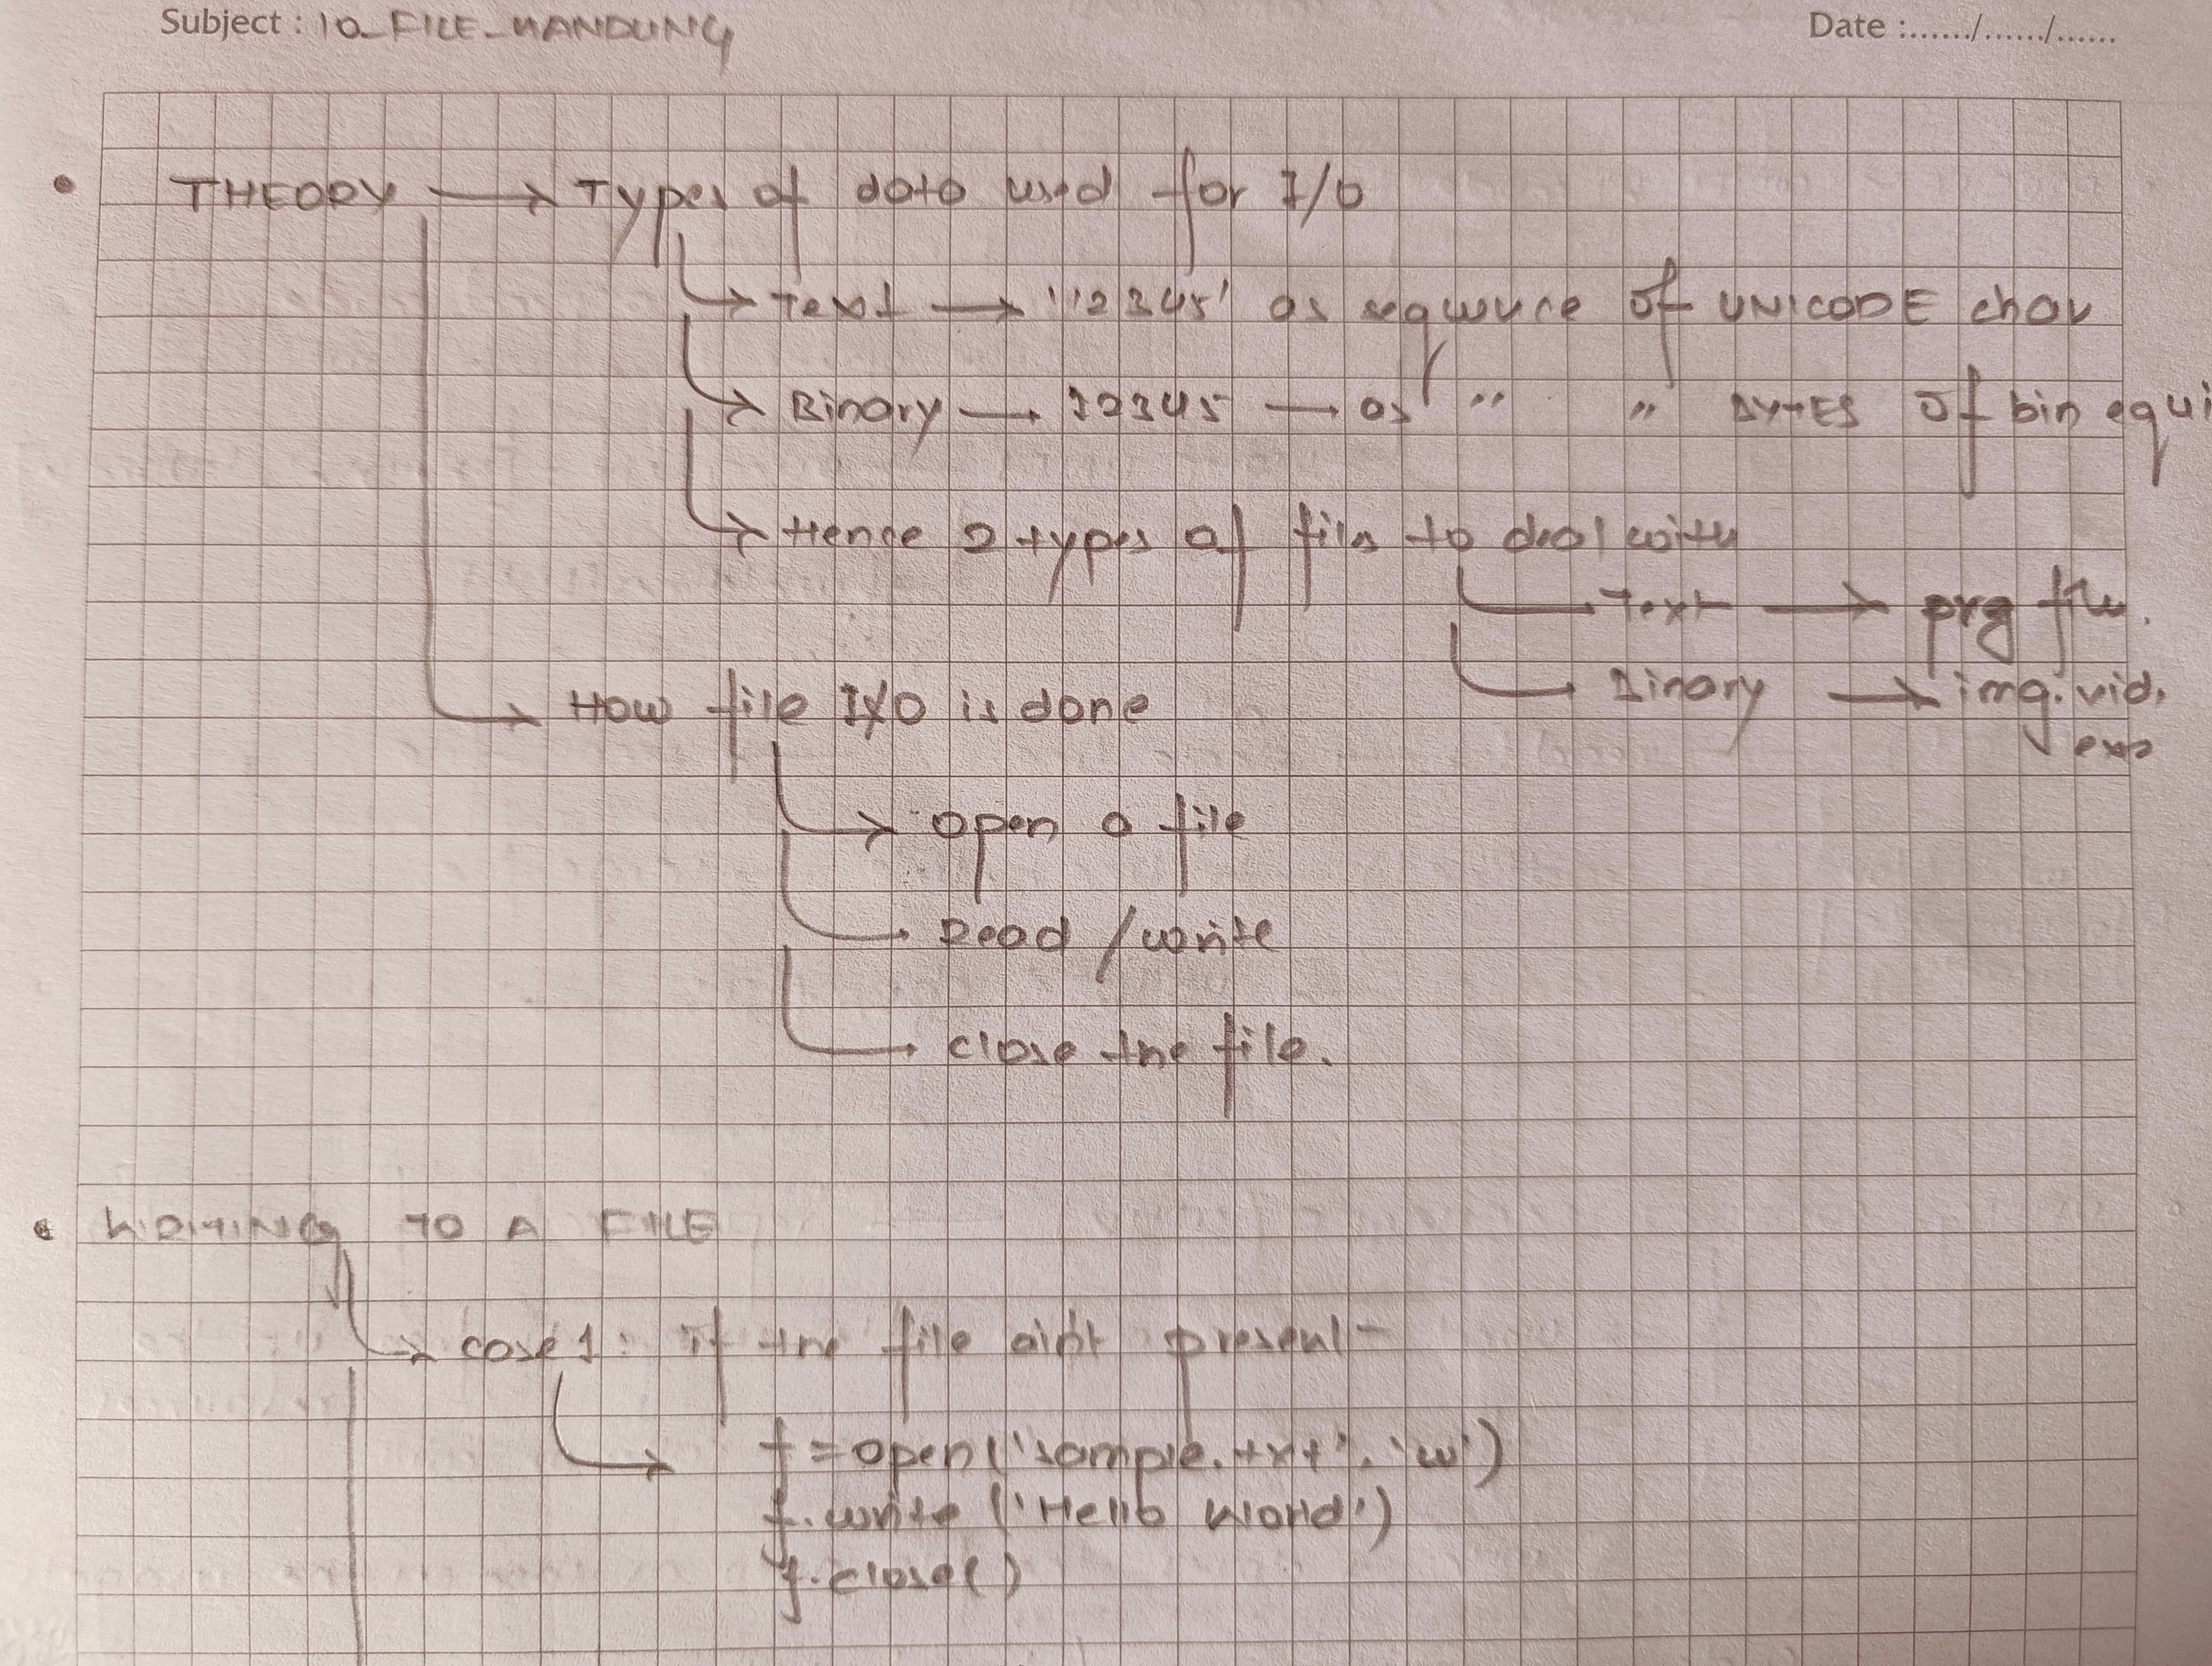 Subject : 10_FILE_HANDLING Date :....../....../......
• THEORY → Types of data used for I/O
→ Text → '12345' as sequence of UNICODE char
→ Binary → 12345 → as " " BYTES of bin equi
→ Hence 2 types of files to deal with
→ Text → prg file.
→ Binary → img. vid.
exe
→ How file I/O is done
→ open a file
→ Read / write
→ close the file.
• WRITING TO A FILE
→ case 1: if the file aint present -
→ f = open('sample.txt', 'w')
f.write ('Hello World')
f.close()